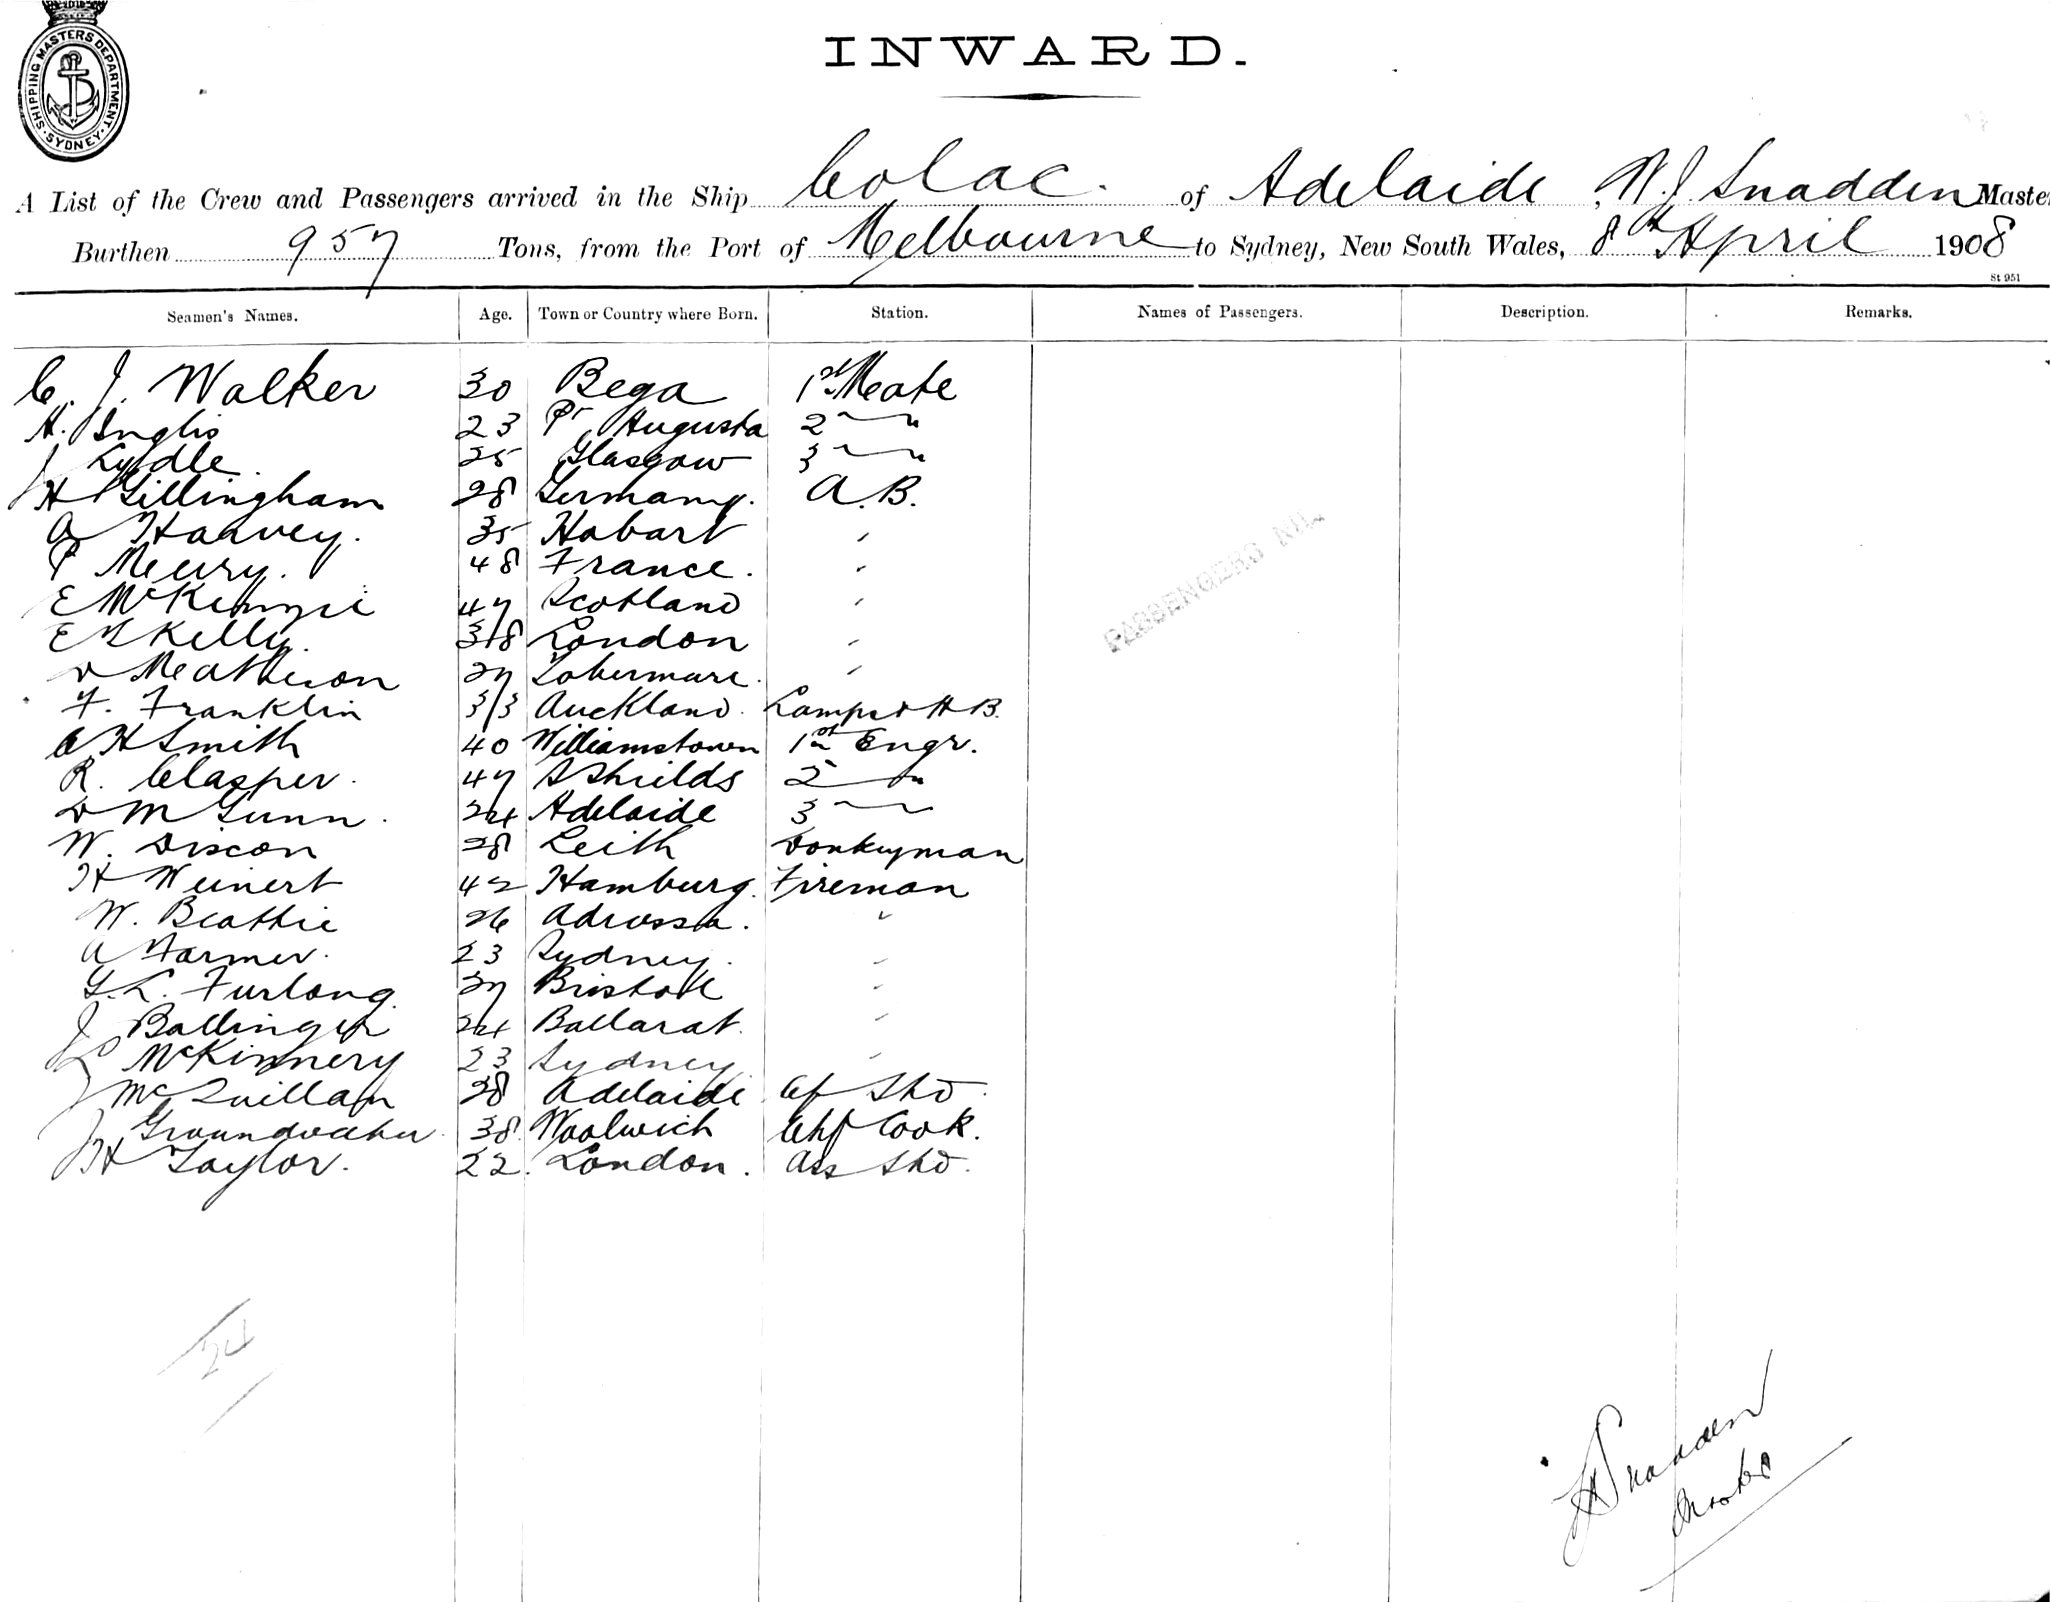 SHIPPING MASTERS DEPARTMENT. SYDNEY.
INWARD.
A List of the Crew and Passengers arrived in the Ship Colac. of Adelaide, W. J. Snadden Master
Burthen 957 Tons, from the Port of Melbourne to Sydney, New South Wales, 8th April 1908
St 951
Seamen's Names. Age. Town or Country where Born. Station. Names of Passengers. Description. Remarks.
C. J. Walker 30 Bega 1st Mate
H. Inglis 23 Pt Augusta 2 "
J Lyddle. 25 Glasgow 3 "
H Gillingham 28 Germany. A.B.
A Harvey. 35 Hobart "
P Meury. 48 France. "
E McKenzie 47 Scotland "
E Kelly. 38 London "
D Matheson 27 Tobermare. "
F. Franklin 33 Auckland. Lamps & A B.
A H Smith 40 Williamstown 1st Engr.
R. Clasper. 47 S Shields 2 "
D M Gunn. 24 Adelaide 3 "
W. Dixon 28 Leith Donkeyman
H Weinert 42 Hamburg. Fireman
W. Beattie 26 Adrossa. "
A Farmer. 23 Sydney. "
G. L. Furlong 27 Bristol "
J Ballinger 24 Ballarat. "
L McKinnery 23 Sydney "
J McQuillan 28 Adelaide Cf Std.
J Groundwater. 38. Woolwich Chf Cook.
H Taylor. 22. London. Ass Std.
PASSENGERS NIL
24
Snadden
Master